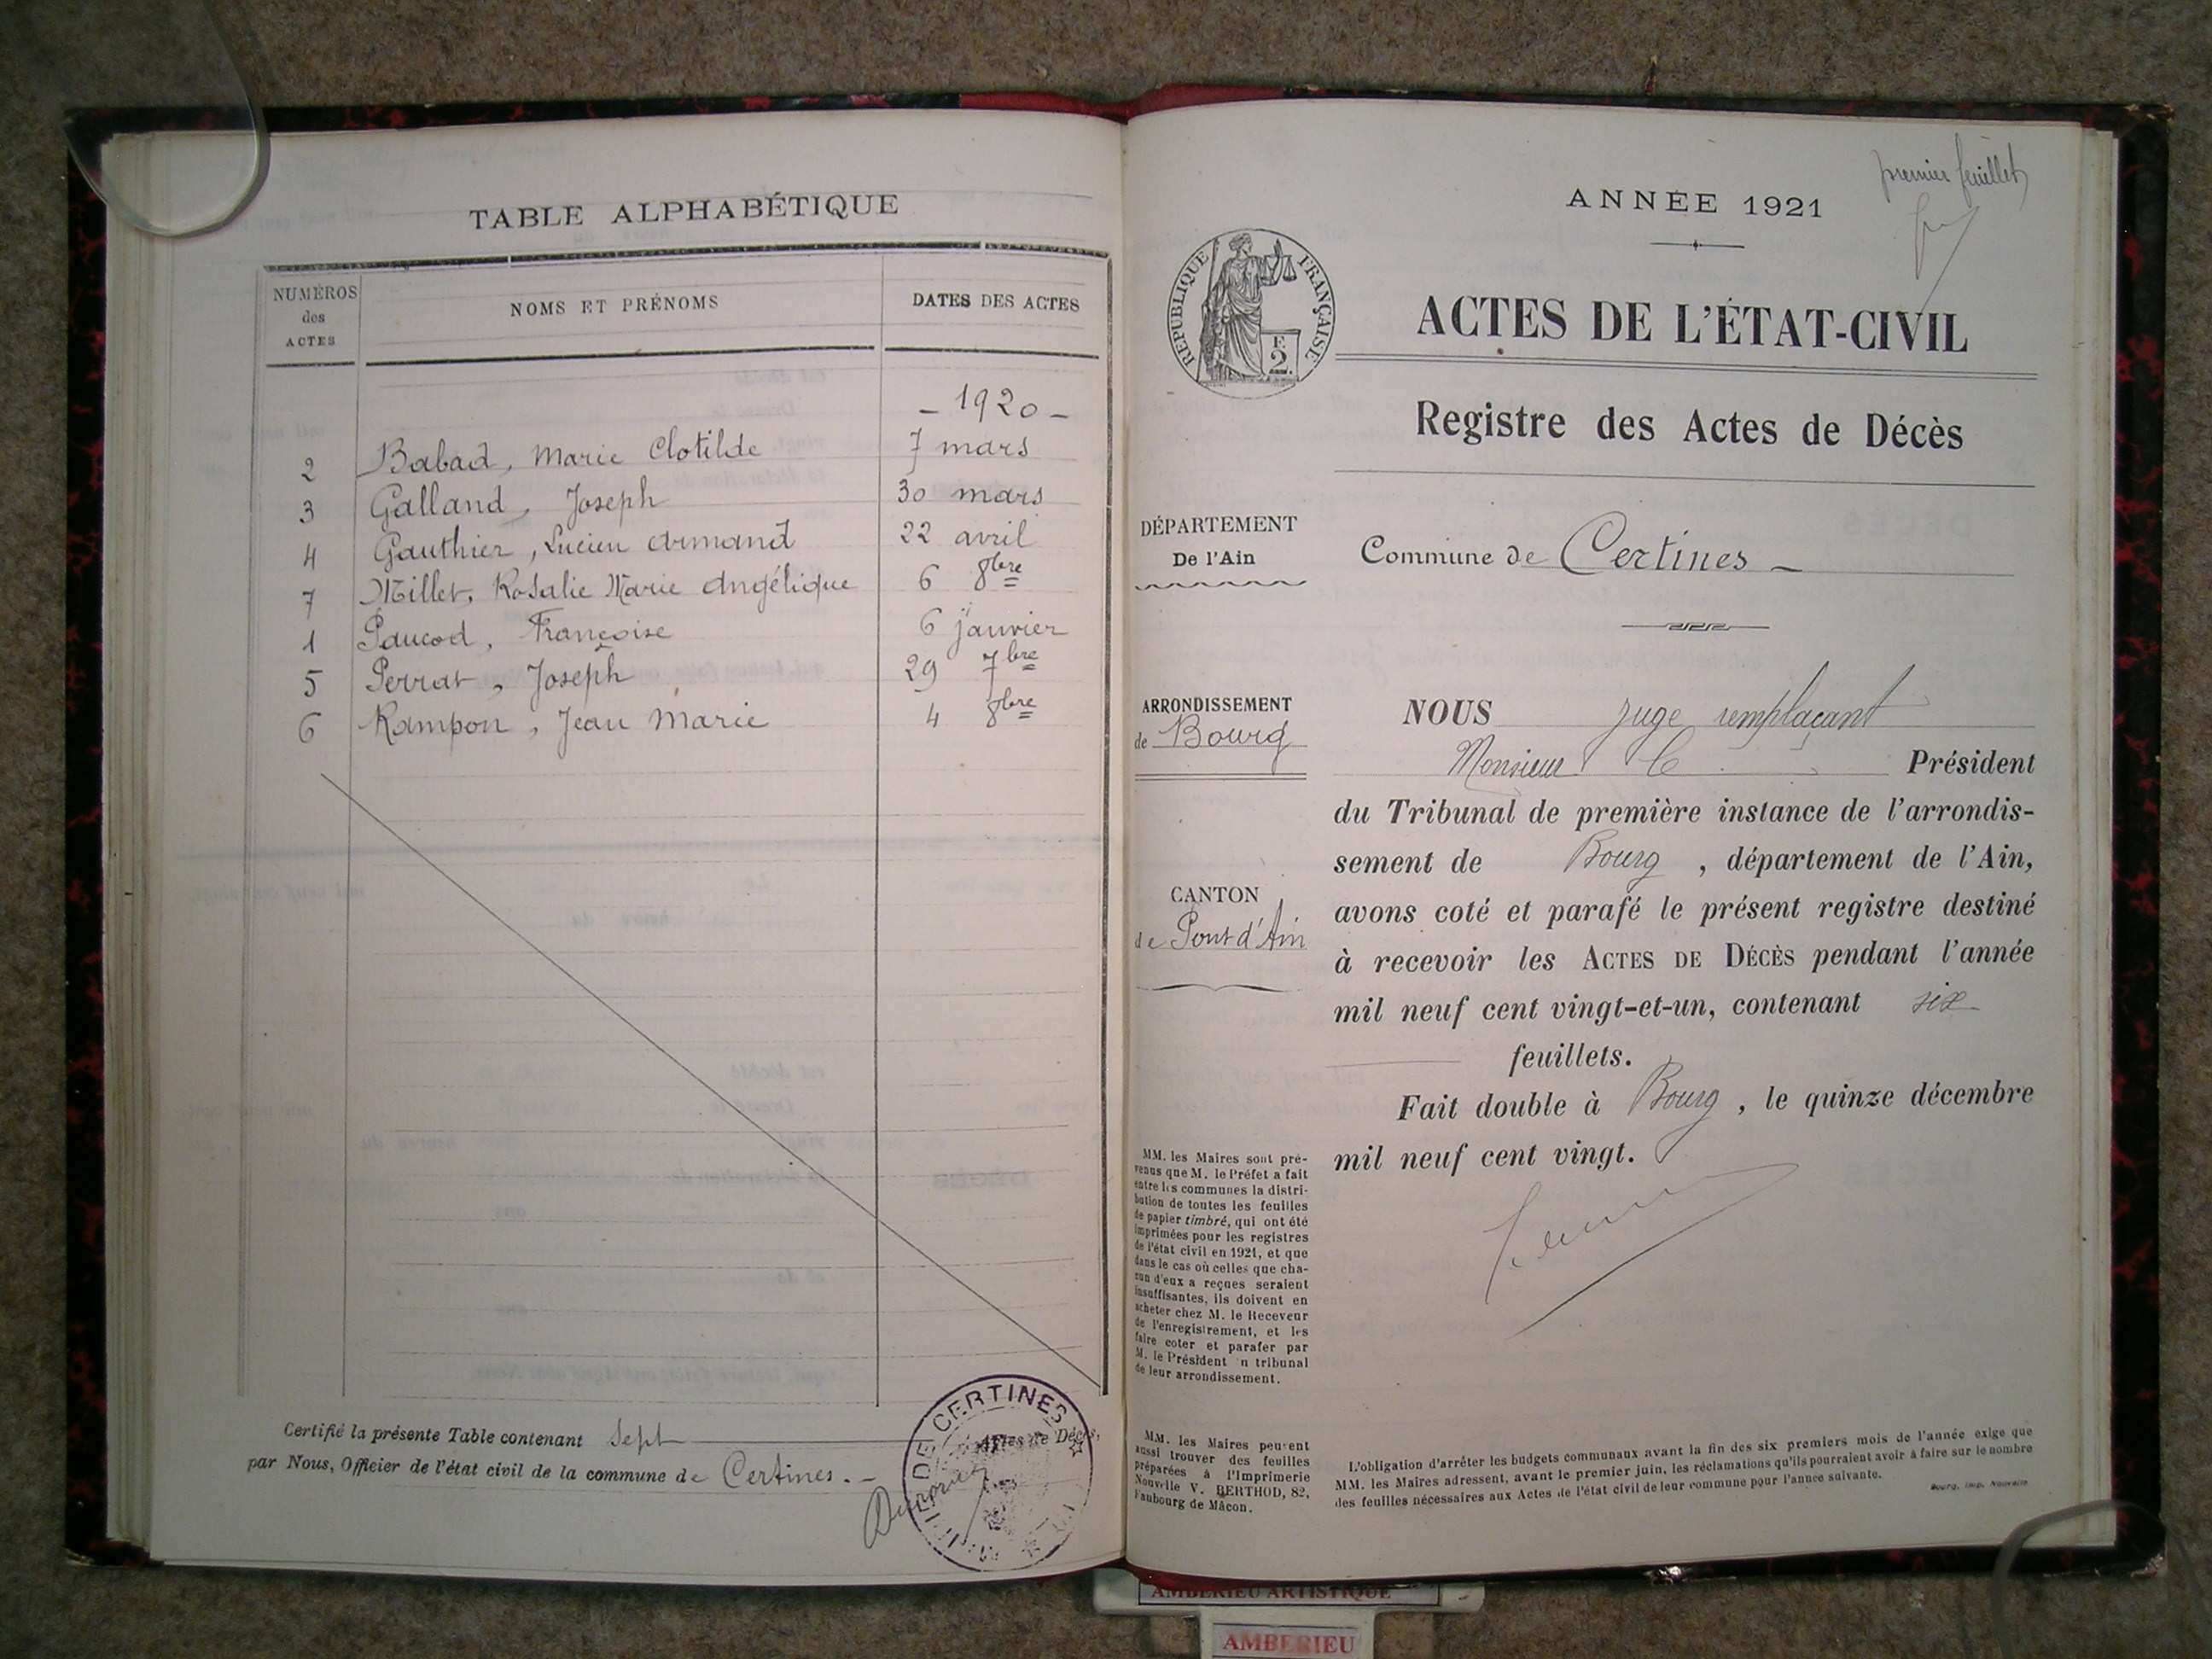 TABLE ALPHABÉTIQUE
NUMÉROS
des
ACTES
NOMS ET PRÉNOMS
DATES DES ACTES
- 1920 -
2 Babad, Marie Clotilde 7 mars
3 Galland, Joseph 30 mars
4 Gauthier, Lucien Armand 22 avril
7 Millet, Rosalie Marie Angélique 6 8bre
1 Paucod, Françoise 6 janvier
5 Perrat, Joseph 29 7bre
6 Rampon, Jean Marie 4 8bre
Certifié la présente Table contenant Sept Actes de Décès,
par Nous, Officier de l'état civil de la commune de Certines.-
DE CERTINES
premier feuillet
ANNÉE 1921
RÉPUBLIQUE FRANÇAISE
E
2.
ACTES DE L'ÉTAT-CIVIL
Registre des Actes de Décès
DÉPARTEMENT
De l'Ain
Commune de Certines -
ARRONDISSEMENT
de Bourg
CANTON
de Pont d'Ain
NOUS juge remplaçant
Monsieur le Président
du Tribunal de première instance de l'arrondis-
sement de Bourg, département de l'Ain,
avons coté et parafé le présent registre destiné
à recevoir les ACTES DE DÉCÈS pendant l'année
mil neuf cent vingt-et-un, contenant six
feuillets.
Fait double à Bourg, le quinze décembre
mil neuf cent vingt.
MM. les Maires sont pré-
venus que M. le Préfet a fait
entre les communes la distri-
bution de toutes les feuilles
de papier timbré, qui ont été
imprimées pour les registres
de l'état civil en 1921, et que
dans le cas où celles que cha-
cun d'eux a reçues seraient
insuffisantes, ils doivent en
acheter chez M. le Receveur
de l'enregistrement, et les
faire coter et parafer par
M. le Président n tribunal
de leur arrondissement.
MM. les Maires peuvent
aussi trouver des feuilles
préparées à l'Imprimerie
Nouvelle V. BERTHOD, 82,
Faubourg de Mâcon.
L'obligation d'arrêter les budgets communaux avant la fin des six premiers mois de l'année exige que
MM. les Maires adressent, avant le premier juin, les réclamations qu'ils pourraient avoir à faire sur le nombre
des feuilles nécessaires aux Actes de l'état civil de leur commune pour l'année suivante.
Bourg, Imp. Nouvelle
AMBERIEU ARTISTIQUE
AMBERIEU